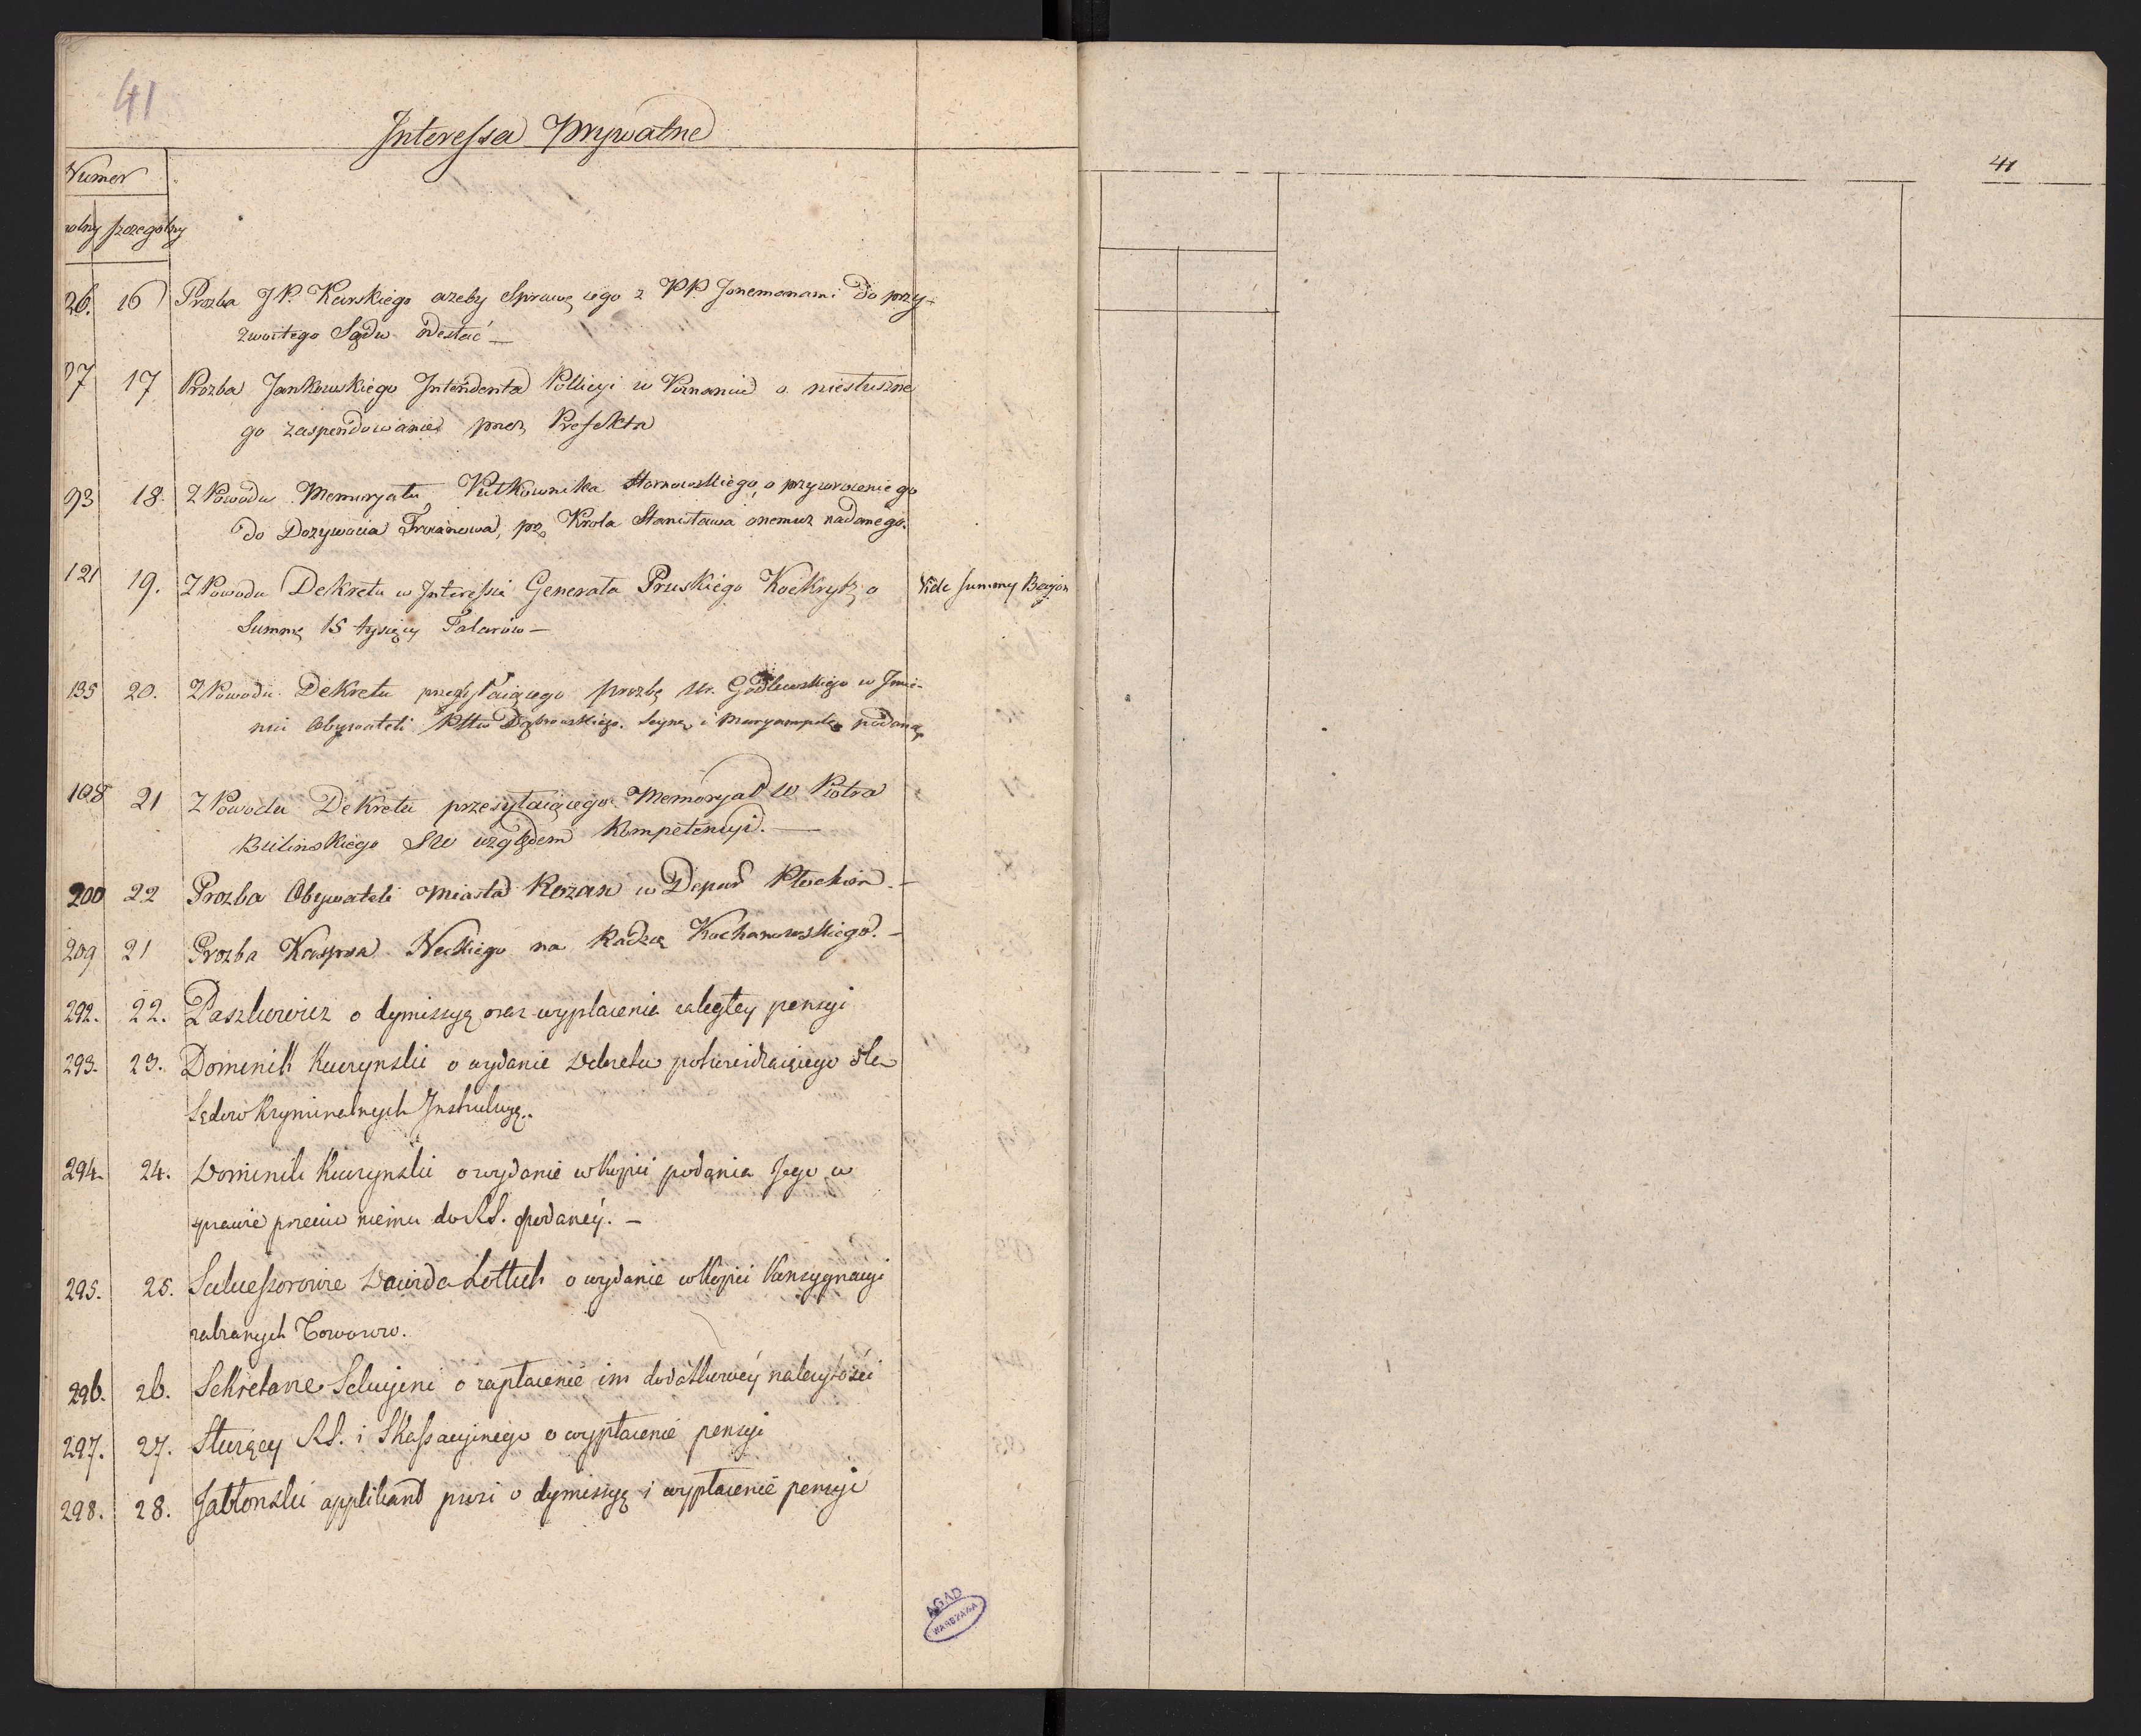 41
Interessa Prywatne
Numer
olny szczegolny
26. 16 Prozba JP. Karskiego azeby Sprawę iego z PP. Jonemanami do przy-
zwoitego Sądu odesłać —
97 17 Prozba Jankowskiego Intendenta Pollicyi w Poznaniu o niesłuszne
go zaspendowanie przez Prefekta
93 18. Z Powodu Memoryału Pułkownika o przywrocenie go
do Dozywocia prz. Krola Stanisława onemuz nadanego.
121 19. Z Powodu Dekretu w Interessie Generała Pruskiego Koekrytz o
Summę 15 tysięcy Talarow —
Vide Summy Bajon
135 20. Z Powodu Dekretu przesyłaiącego prozbę Ur. Godlewskiego w Imie-
niu Obywateli Pttu Dąbrowskiego. Seyny i Maryampolu podaną
198 21 Z Powodu Dekretu przesyłaiącego Memoryał W Piotra
Bilinskiego względem Kompetencyi. —
200 22 Prozba Obywateli Miasta Rozan w Depar Płockim. —
209 21 Prozba Kaspra Neckiego na Radzcę Kochanowskiego. —
292. 22. Paszkowicz o dymissyą oraz wypłacenie zaległey pensyi
293. 23. Dominik Kuczynski o wydanie Dekretu potwierdzaiącego dla
Sądow Kryminalnych Instrukcyą.
294. 24. Dominik Kuczynski o wydanie w Kopii podania Jego w
sprawie przeciw niemu do RS. podaney. —
295. 25. Sukcessorowie Dawida Lottich o wydanie w Kopii Konsygnacyi
zabranych Towarow.
296. 26. Sekretarze Sekcyini o zapłacenie im dodatkowey należytości
297. 27. Służący RS. i SKassacyinego o wypłacenie pensyi
298. 28. Jabłonski applikant prosi o dymissyą i wypłacenie pensyi
AGAD
WARSZAWA
41